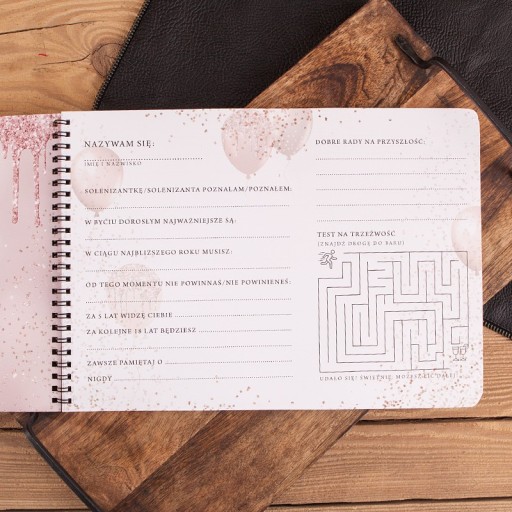 NAZYWAM SIĘ:
IMIĘ I NAZWISKO
SOLENIZANTKĘ/SOLENIZANTA POZNAŁAM/POZNAŁEM:
W BYCIU DOROSŁYM NAJWAŻNIEJSZE SĄ:
W CIĄGU NAJBLIŻSZEGO ROKU MUSISZ:
OD TEGO MOMENTU NIE POWINNAŚ/NIE POWINIENEŚ:
ZA 5 LAT WIDZĘ CIEBIE
ZA KOLEJNE 18 LAT BĘDZIESZ
ZAWSZE PAMIĘTAJ O
NIGDY
DOBRE RADY NA PRZYSZŁOŚĆ:
TEST NA TRZEŹWOŚĆ
(ZNAJDŹ DROGĘ DO BARU)
UDAŁO SIĘ! ŚWIETNIE, MOŻESZ PIĆ DALEJ